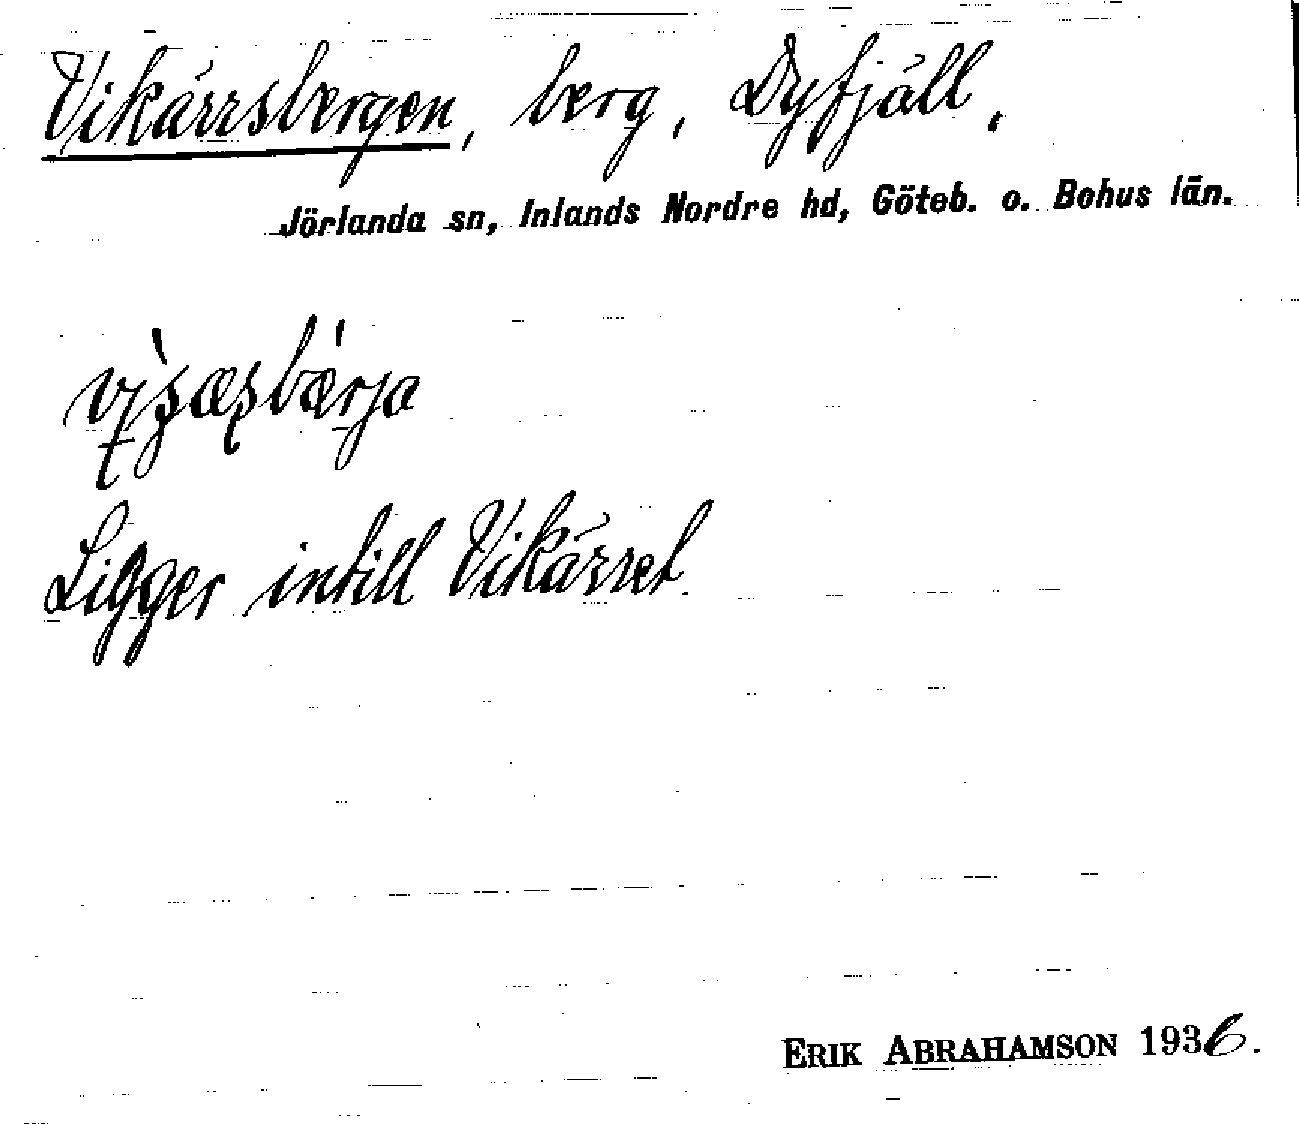 Vikärrsbergen, berg, Dyfjäll,
Jörlanda sn, Inlands Nordre hd, Göteb. o. Bohus län.
Ligger intill Vikärret.
ERIK ABRAHAMSON 1936.